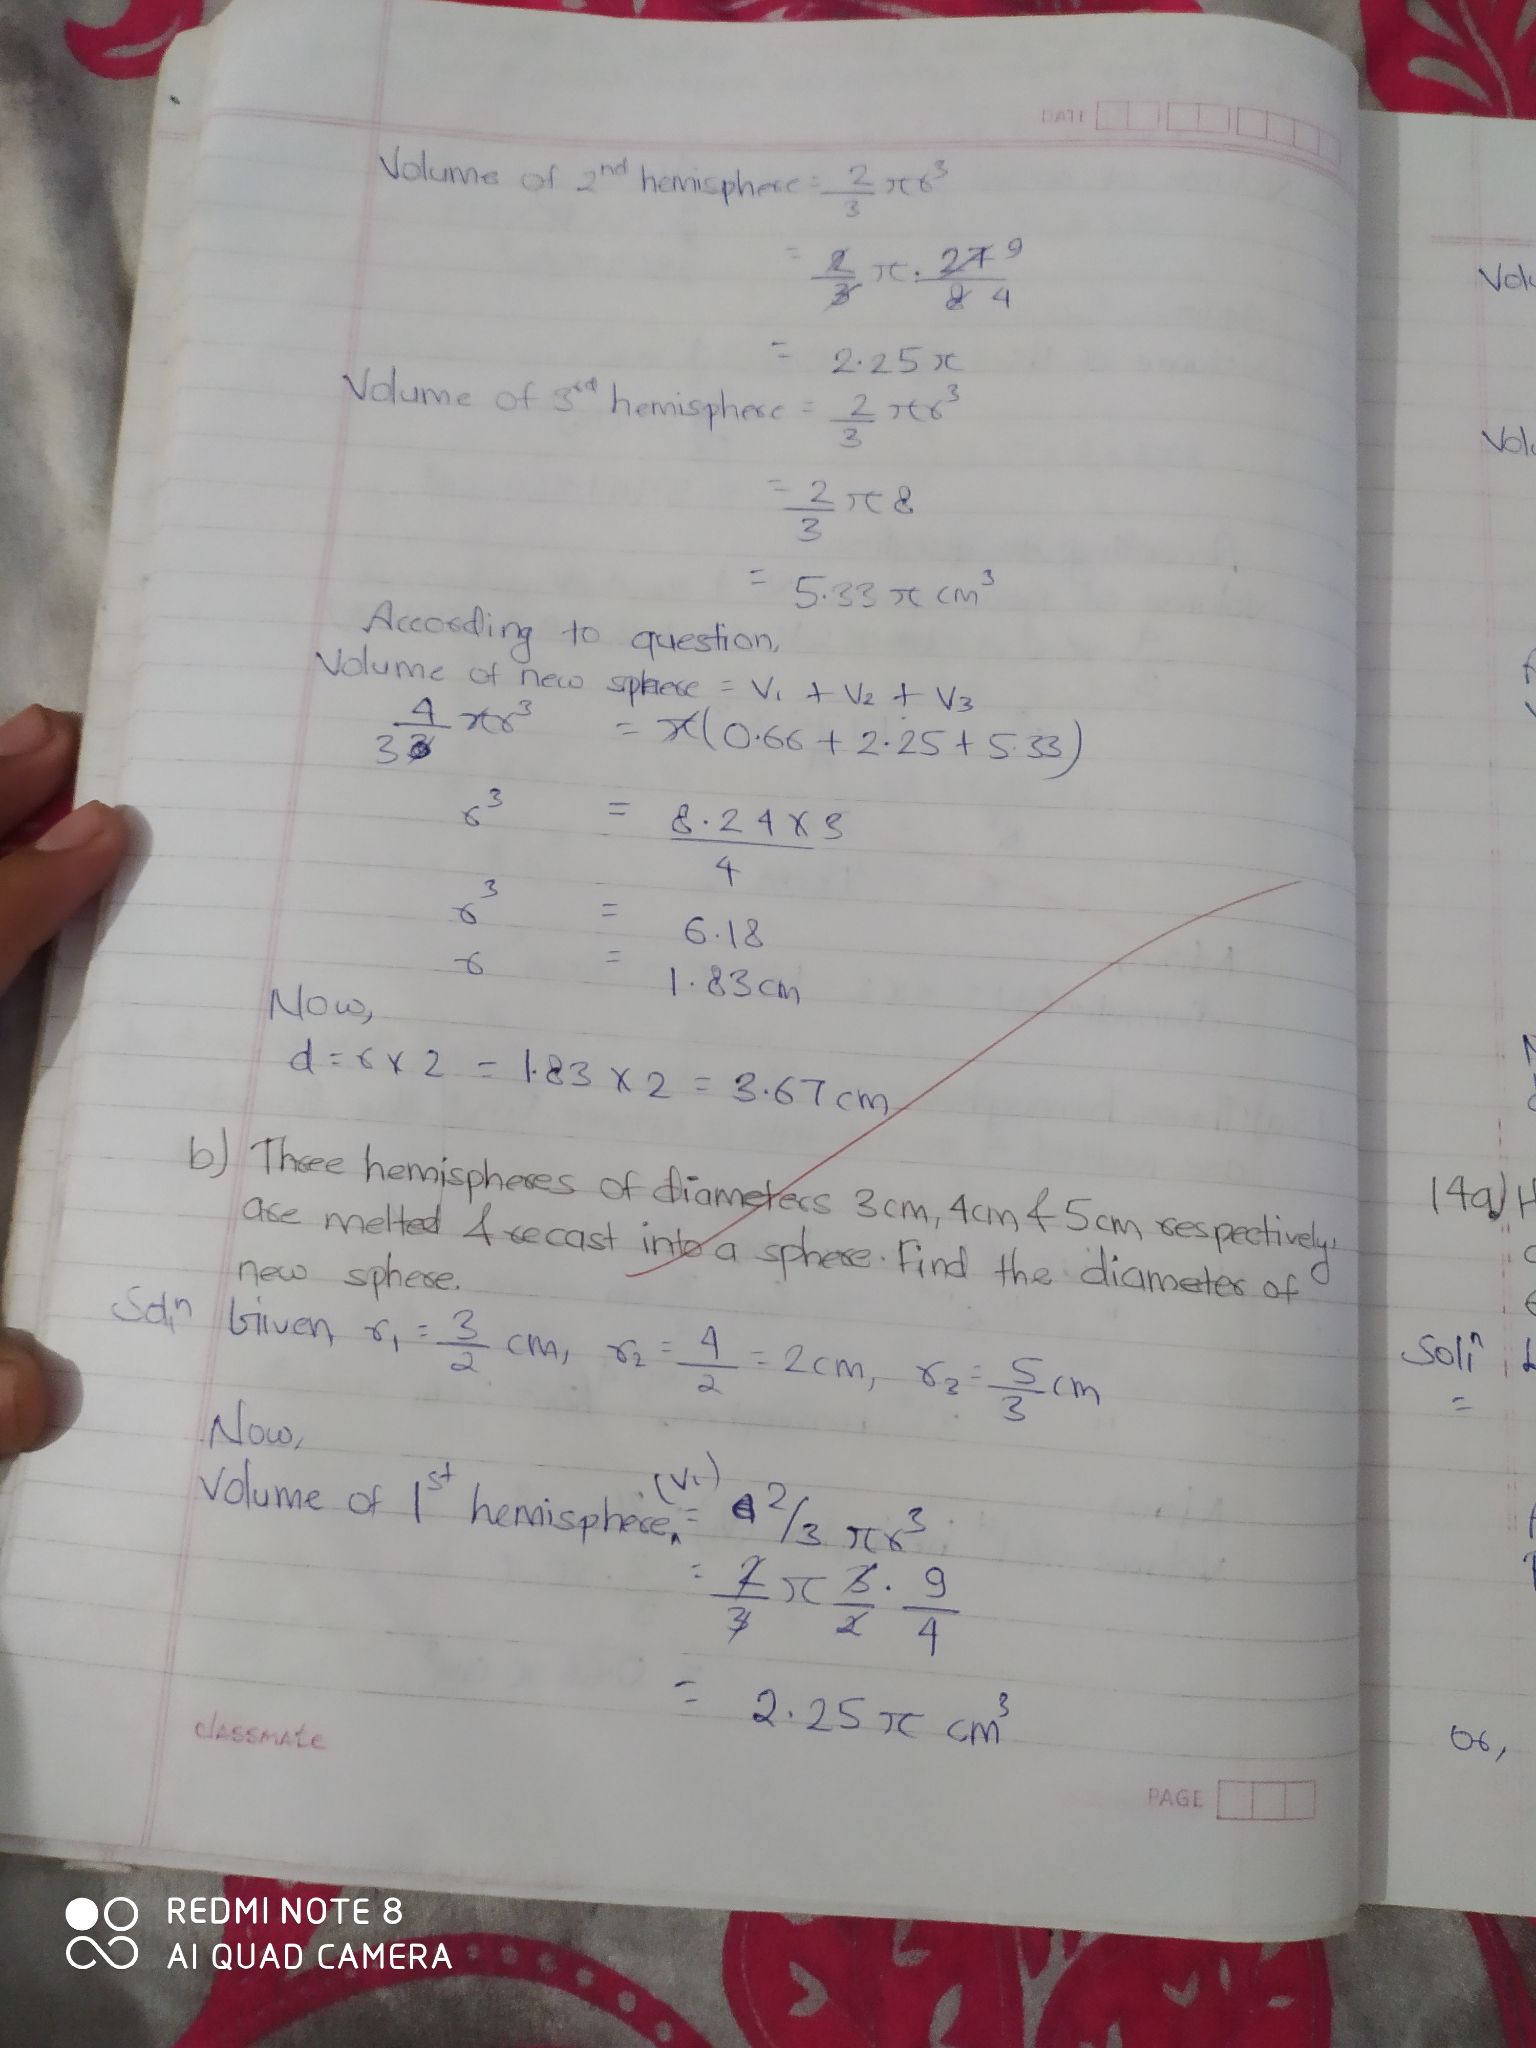 DATE
Volume of 2nd hemisphere = 2/3 πr³
= 2/3 π. 27 9 / 8 4
= 2.25 π
Volume of 3rd hemisphere = 2/3 πr³
= 2/3 π 8
= 5.33 π cm³
According to question,
Volume of new sphere = V₁ + V₂ + V₃
4/3 3 πr³ = π(0.66 + 2.25 + 5.33)
r³ = 8.24 x 3 / 4
r³ = 6.18
r = 1.83cm
Now,
d = r x 2 = 1.83 x 2 = 3.67 cm
b) Three hemispheres of diameters 3cm, 4cm & 5cm respectively,
are melted & recast into a sphere. Find the diameter of
new sphere.
Solⁿ Given, r₁ = 3/2 cm, r₂ = 4/2 = 2cm, r₃ = 5/3 cm
Now,
Volume of 1st hemisphere, (V₁) = 2/3 πr³
= 2/3 π 3/2 . 9/4
= 2.25 π cm³
classmate
PAGE
14a)
Soliⁿ
=
or,
REDMI NOTE 8
AI QUAD CAMERA